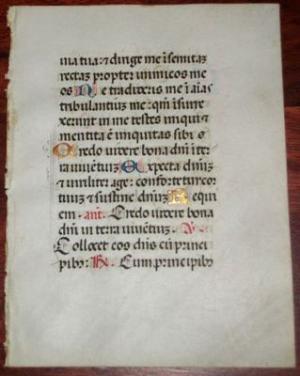 uia tua: ⁊ dirige me ī semitas
rectas propter inimicos me
os Ne tradideris me ī aīas
tribulantiuz me: qm̄ īsurre
xerunt in me testes iniqui ⁊
mentita ē iniquitas sibi
Credo uidere bona dn̄i ī ter
ra uiuētiuz Expecta dn̄uz
⁊ uiriliter age: confortetur cor
tuuz ⁊ sustine dn̄uz Requi
em. ant. Credo uidere bona
dn̄i in terra uiuētiuz.
Collocet eos dn̄s cū princi
pibus: Cum principibus